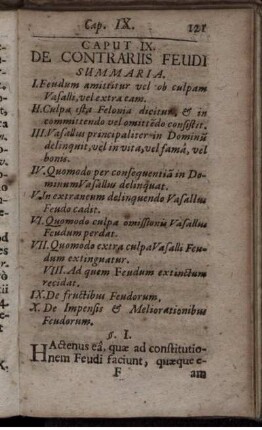 Cap. IX. 121
CAPUT IX.
DE CONTRARIIS FEUDI
SUMMARIA.
I. Feudum amittitur vel ob culpam
Vasalli, vel extra eam.
II. Culpa ista Felonia dicitur, & in
committendo vel omittēdo consistit.
III. Vasallus principaliter in Dominū
delinquit, vel in vita, vel famâ, vel
bonis.
IV. Quomodo per consequentiā in Do-
minum Vasallus delinquat.
V. In extraneum delinquendo Vasallus
Feudo cadit.
VI. Quomodo culpa omissionis Vasallus
Feudum perdat.
VII. Quomodo extra culpā Vasalli Feu-
dum extinguatur.
VIII. Ad quem Feudum extinctum
recidat.
IX. De fructibus Feudorum,
X. De Impensis & Meliorationibus
Feudorum.
§. I.
HActenus eâ, quæ ad constitutio-
nem Feudi faciunt, quæque e-
F am